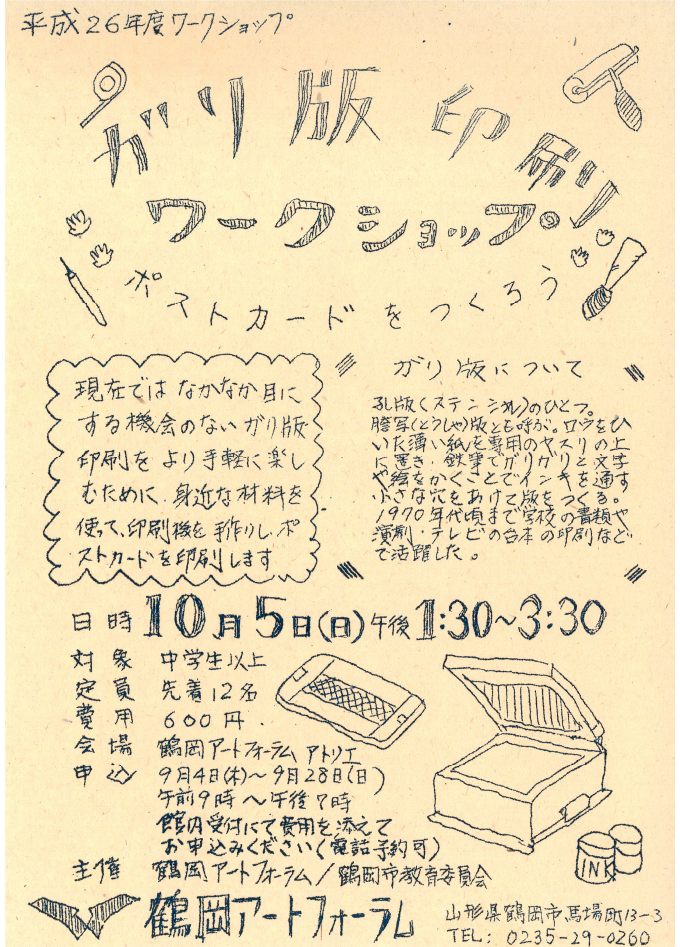 平成26年度ワークショップ
ガリ版印刷
ワークショップ
ポストカードをつくろう
現在では なかなか目に
する機会のないガリ版
印刷を より手軽に楽し
むために、身近な材料を
使って、印刷機を手作りし、ポ
ストカードを印刷します
ガリ版について
孔版(ステンシル)のひとつ。
謄写(とうしゃ)版とも呼ぶ。ロウをひ
いた薄い紙を専用のヤスリの上
に置き、鉄筆でガリガリと文字
や絵をかくことでインキを通す
小さな穴をあけて版をつくる。
1970年代頃まで学校の書類や
演劇・テレビの台本の印刷など
で活躍した。
日時 10月5日(日)午後1:30~3:30
対象 中学生以上
定員 先着12名
費用 600円.
会場 鶴岡アートフォーラム アトリエ
申込 9月4日(木)~9月28日(日)
午前9時~午後7時
館内受付にて費用を添えて
お申込みください(電話予約可)
主催 鶴岡アートフォーラム/鶴岡市教育委員会
INK
鶴岡アートフォーラム
山形県鶴岡市馬場町13-3
TEL: 0235-29-0260